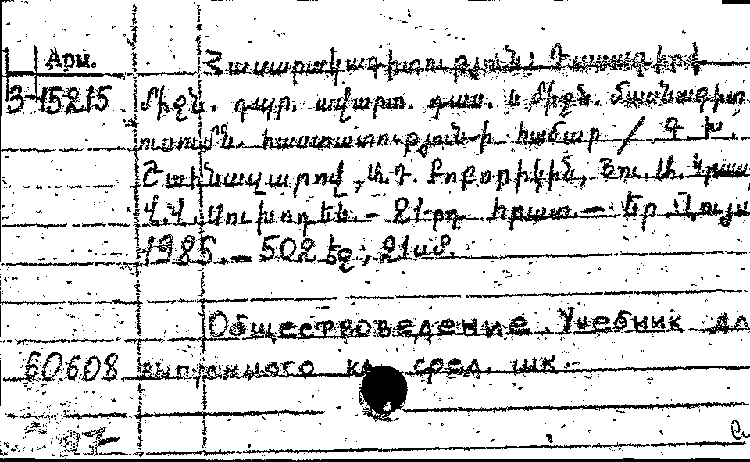 Арм.
Հասարակագիտություն: Դասագիրք
3-15215 միջն. դպր. ավարտ. դաս. և միջն. մասնագիտ
ուսումն. հաստատություն-ի համար / Գ. Խ.
Շախնազարով, Ա. Դ. Բոբորիկին, Յու. Ա. Կրաս
Վ. Վ. Սուխոդեև. - 21-րդ հրատ. - Եր.: Լույս
1985. - 502 էջ; 21սմ.
Обществоведение. Учебник дл
60608 выпускного кл. сред. шк. -